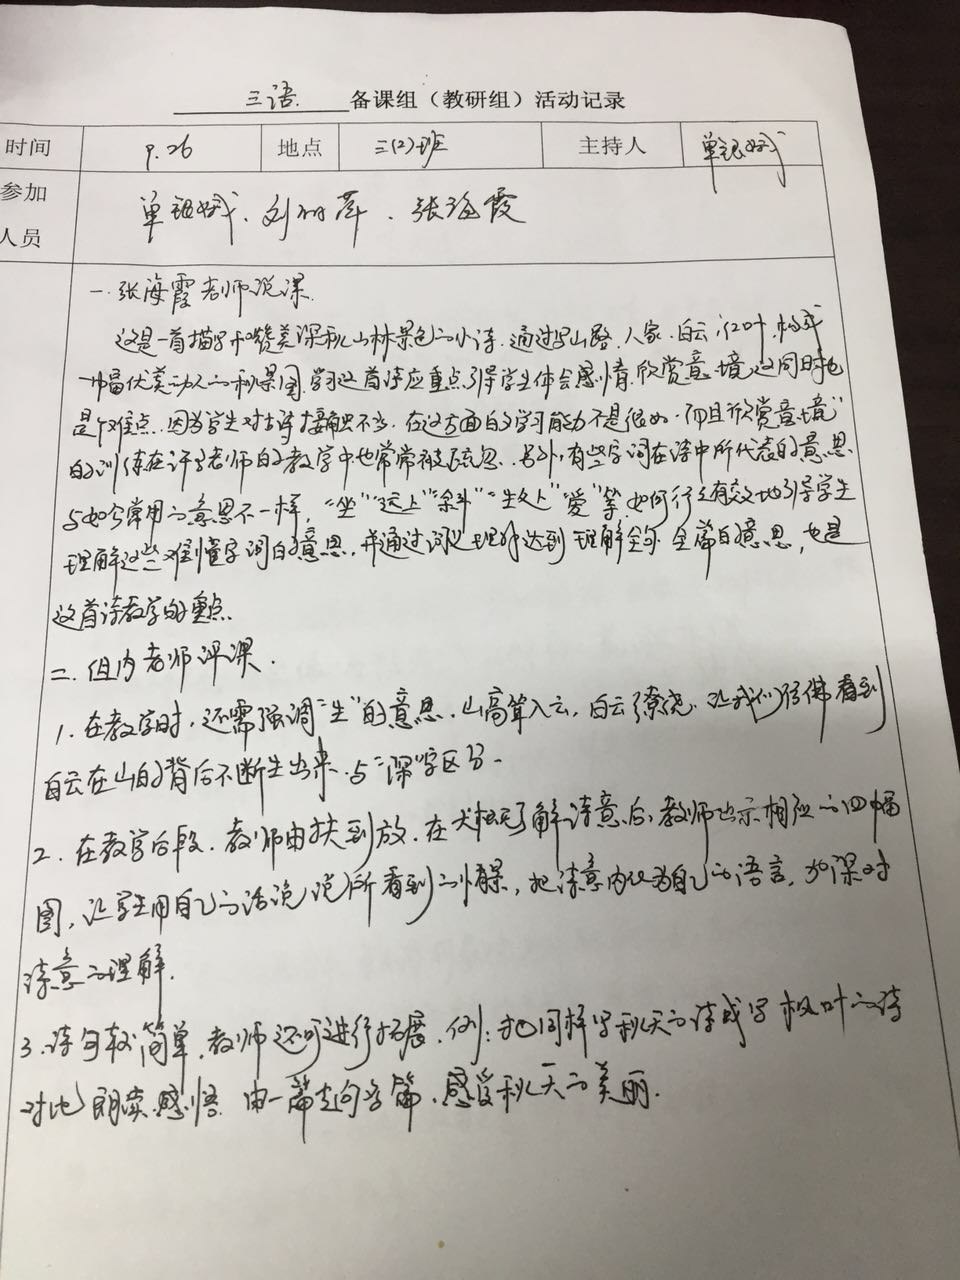 三语 备课组（教研组）活动记录
时间 9.26 地点 三(2)班 主持人 单
参加人员 单 刘 萍、张海霞
一.张海霞老师说课.
这是一首描写和赞美深秋山林景色的小诗.通过写山路、人家、白云、红叶,构成
一幅优美动人的秋景图.学习这首诗应重点引导学生体会感情,欣赏意境,这同时也
是个难点.因为学生对古诗接触不多,在这方面的学习能力不是很好.而且“欣赏意境”
的训练在许多老师的教学中也常常被疏忽.另外,有些字词在诗中所代表的意思
与如今常用的意思不一样,“坐”“远上”“斜”“生”“爱”等.如何行之有效地引导学生
理解这些难懂字词的意思,并通过词义理解达到理解全句、全篇的意思,也是
这首诗教学的重点.
二.组内老师评课.
1.在教学时,还需强调“生”的意思.山高耸入云,白云缭绕.让我们仿佛看到
白云在山的背后不断生出来.与“深”字区分.
2.在教学后段.教师由扶到放.在大概了解诗意后,教师出示相应的四幅
图,让学生用自己的话说说所看到的情景,把诗意内化为自己的语言,加深对
诗意的理解.
3.诗句较简单,教师还可进行拓展.例:把同样写秋天的诗或写枫叶的诗
对比朗读.感悟.由一篇走向多篇.感受秋天的美丽.